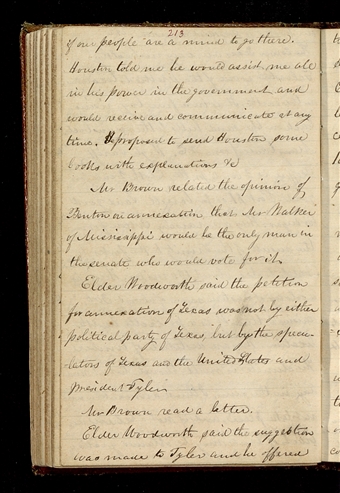 213
if our people are a mind to go there.
Houston told me he would assist me all
in his power in the government and
would receive and communicate at any
time. He proposed to send Houston some
books with explanations &c
Mr Brown related the opinion of
Benton on annexation that Mr Walker
of Mississippi would be the only man in
the senate who would vote for it.
Elder Woodworth said the petition
for annexation of Texas was not by either
political party of Texas but by the specu-
lators of Texas and the United States and
president Tyler
Mr Brown read a letter.
Elder Woodworth said the suggestion
was made to Tyler and he offered